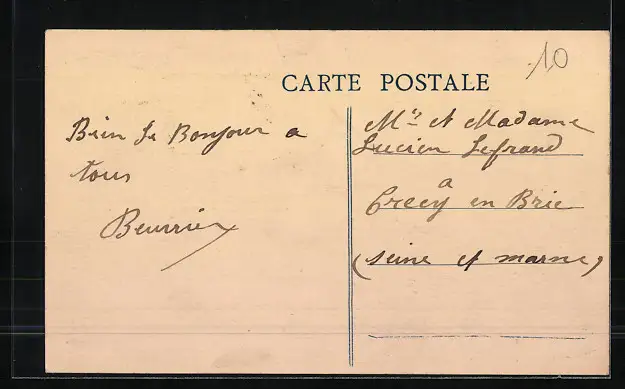 10
CARTE POSTALE
Bien le Bonjour a
tous
Beurrier
Mr et Madame
Lucien Lefrand
a
Crecy en Brie
(seine et marne)